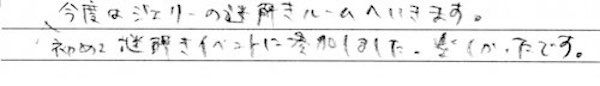 今度はジェリーの謎解きルームへいきます。
初めて謎解きイベントに参加しました。楽しかったです。